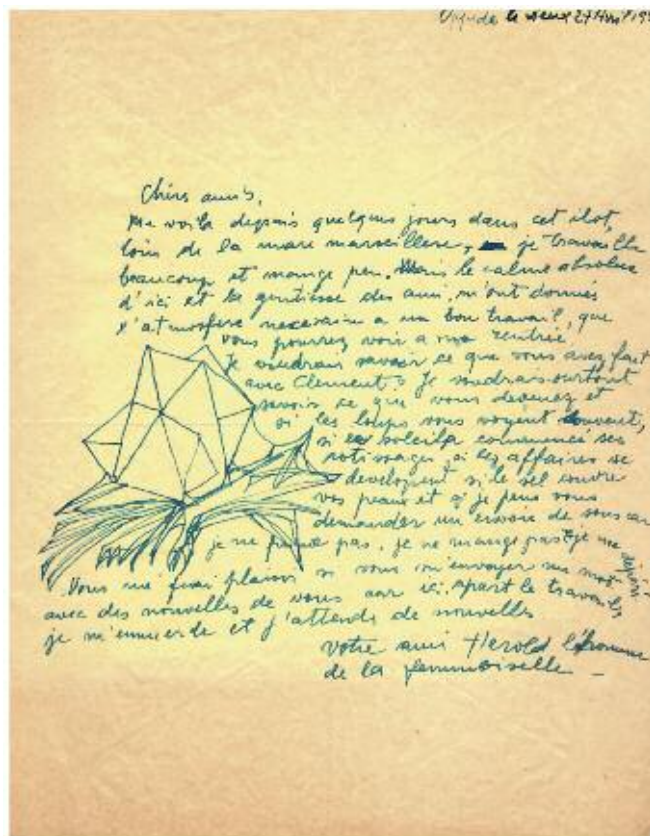 Oppède le vieux 27 Avril 19
Chers amis,
Me voilà depuis quelques jours dans cet ilot,
loin de la mare marseillaise, je travaille
beaucoup et mange peu. Mais le calme absolue
d'ici et la gentiesse des ami, m'ont donnés
l'atmosfere necesaire a un bon travail, que
vous pourrez voir a ma rentrée
Je voudrais savoir ce que vous avez fait
avec Clement? Je voudrais surtout
savoir ce que vous devenez et
si les loups vous voyent souvent,
si le soleil a commencé ses
rotissages, si les affaires se
developent si le sel couvre
vos peaux et si je peux vous
demander un envoie de sous car
je ne fume pas, je ne mange pas et je me
Vous me ferai plaisir si vous m'envoyer un mot
avec des nouvelles de vous car ici, apart le travail
je m'emmerde et j'attends de nouvelles
votre ami Herold l'homme
de la femmoiselle –